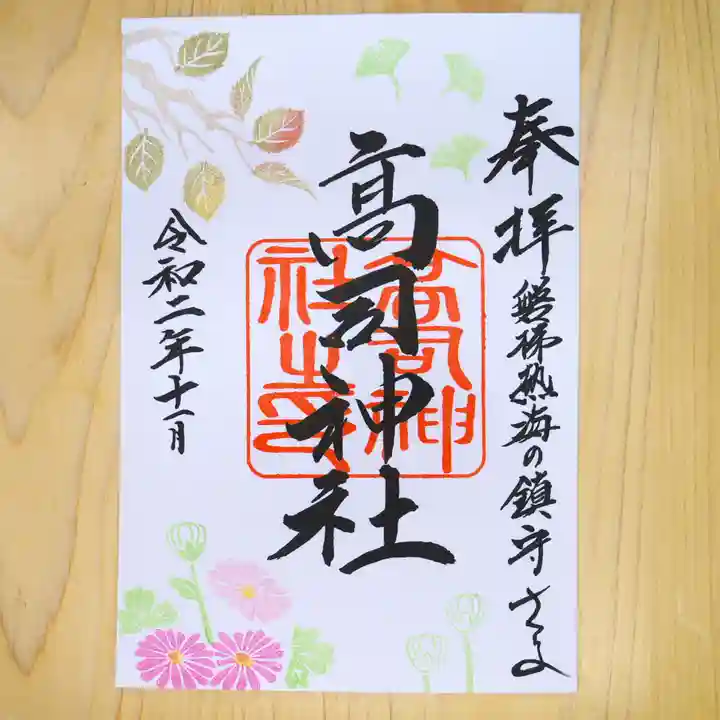 奉拝
磐梯熱海の鎮守さま
高司神社
高司神
社之印
令和二年十一月